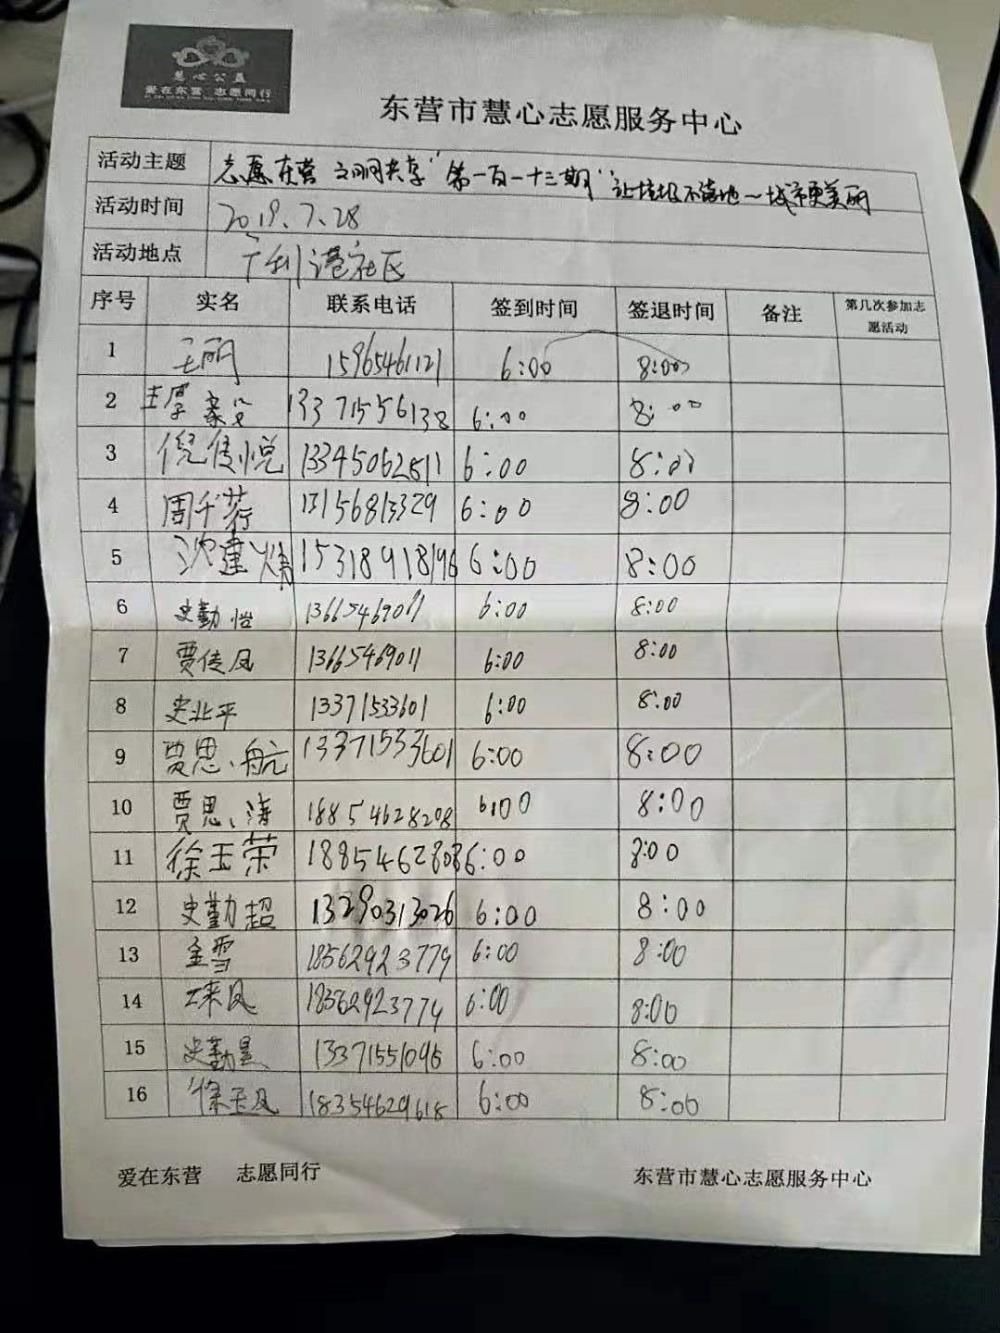 慧心公益
爱在东营 志愿同行
东营市慧心志愿服务中心
活动主题 志愿东营 文明共享"第一百一十三期"让垃圾不落地～城市更美丽
活动时间 2019.7.28
活动地点 广利港社区
序号 实名 联系电话 签到时间 签退时间 备注 第几次参加志愿活动
1 王丽 15965461121 6:00 8:00
2 13371556138 6:00 8:00
3 倪俊悦 13345062811 6:00 8:00
4 周千荇 13156813329 6:00 8:00
5 沈建 15318918196 6:00 8:00
6 史勤怡 13665469011 6:00 8:00
7 贾传凤 13665469011 6:00 8:00
8 史北平 13371533601 6:00 8:00
9 贾思航 13371533601 6:00 8:00
10 贾思涛 18854628208 6:00 8:00
11 徐玉荣 6:00 8:00
12 史勤超 13290313026 6:00 8:00
13 金雪 18562923779 6:00 8:00
14 6:00 8:00
15 史勤昱 13371551096 6:00 8:00
16 徐玉凤 18354629618 6:00 8:00
爱在东营 志愿同行 东营市慧心志愿服务中心